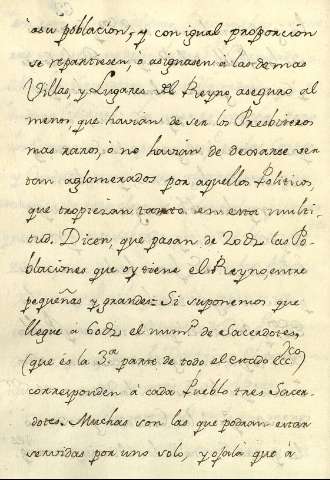 a su poblacion, y con igual proporcion
se repartiesen, ò asignasen à las demas
Villas, y Lugares del Reyno, aseguro al
menos que havian de ser los Presbiteros
mas raros, ò no havian de dexarse ver
tan aglomerados por aquellos Politicos,
que tropiezan tanto en esta multi-
tud. Dicen, que pasan de 20 las Po-
blaciones que oy tiene el Reyno entre
pequeñas y grandes: Si suponemos que
llegue a 60 el num.º de Sacerdotes,
(que és la 3.ª parte de todo el estado ecc.co)
corresponden à cada Pueblo tres Sacer-
dotes. Muchas son las que podran estar
servidas por uno solo, y ojalà que à